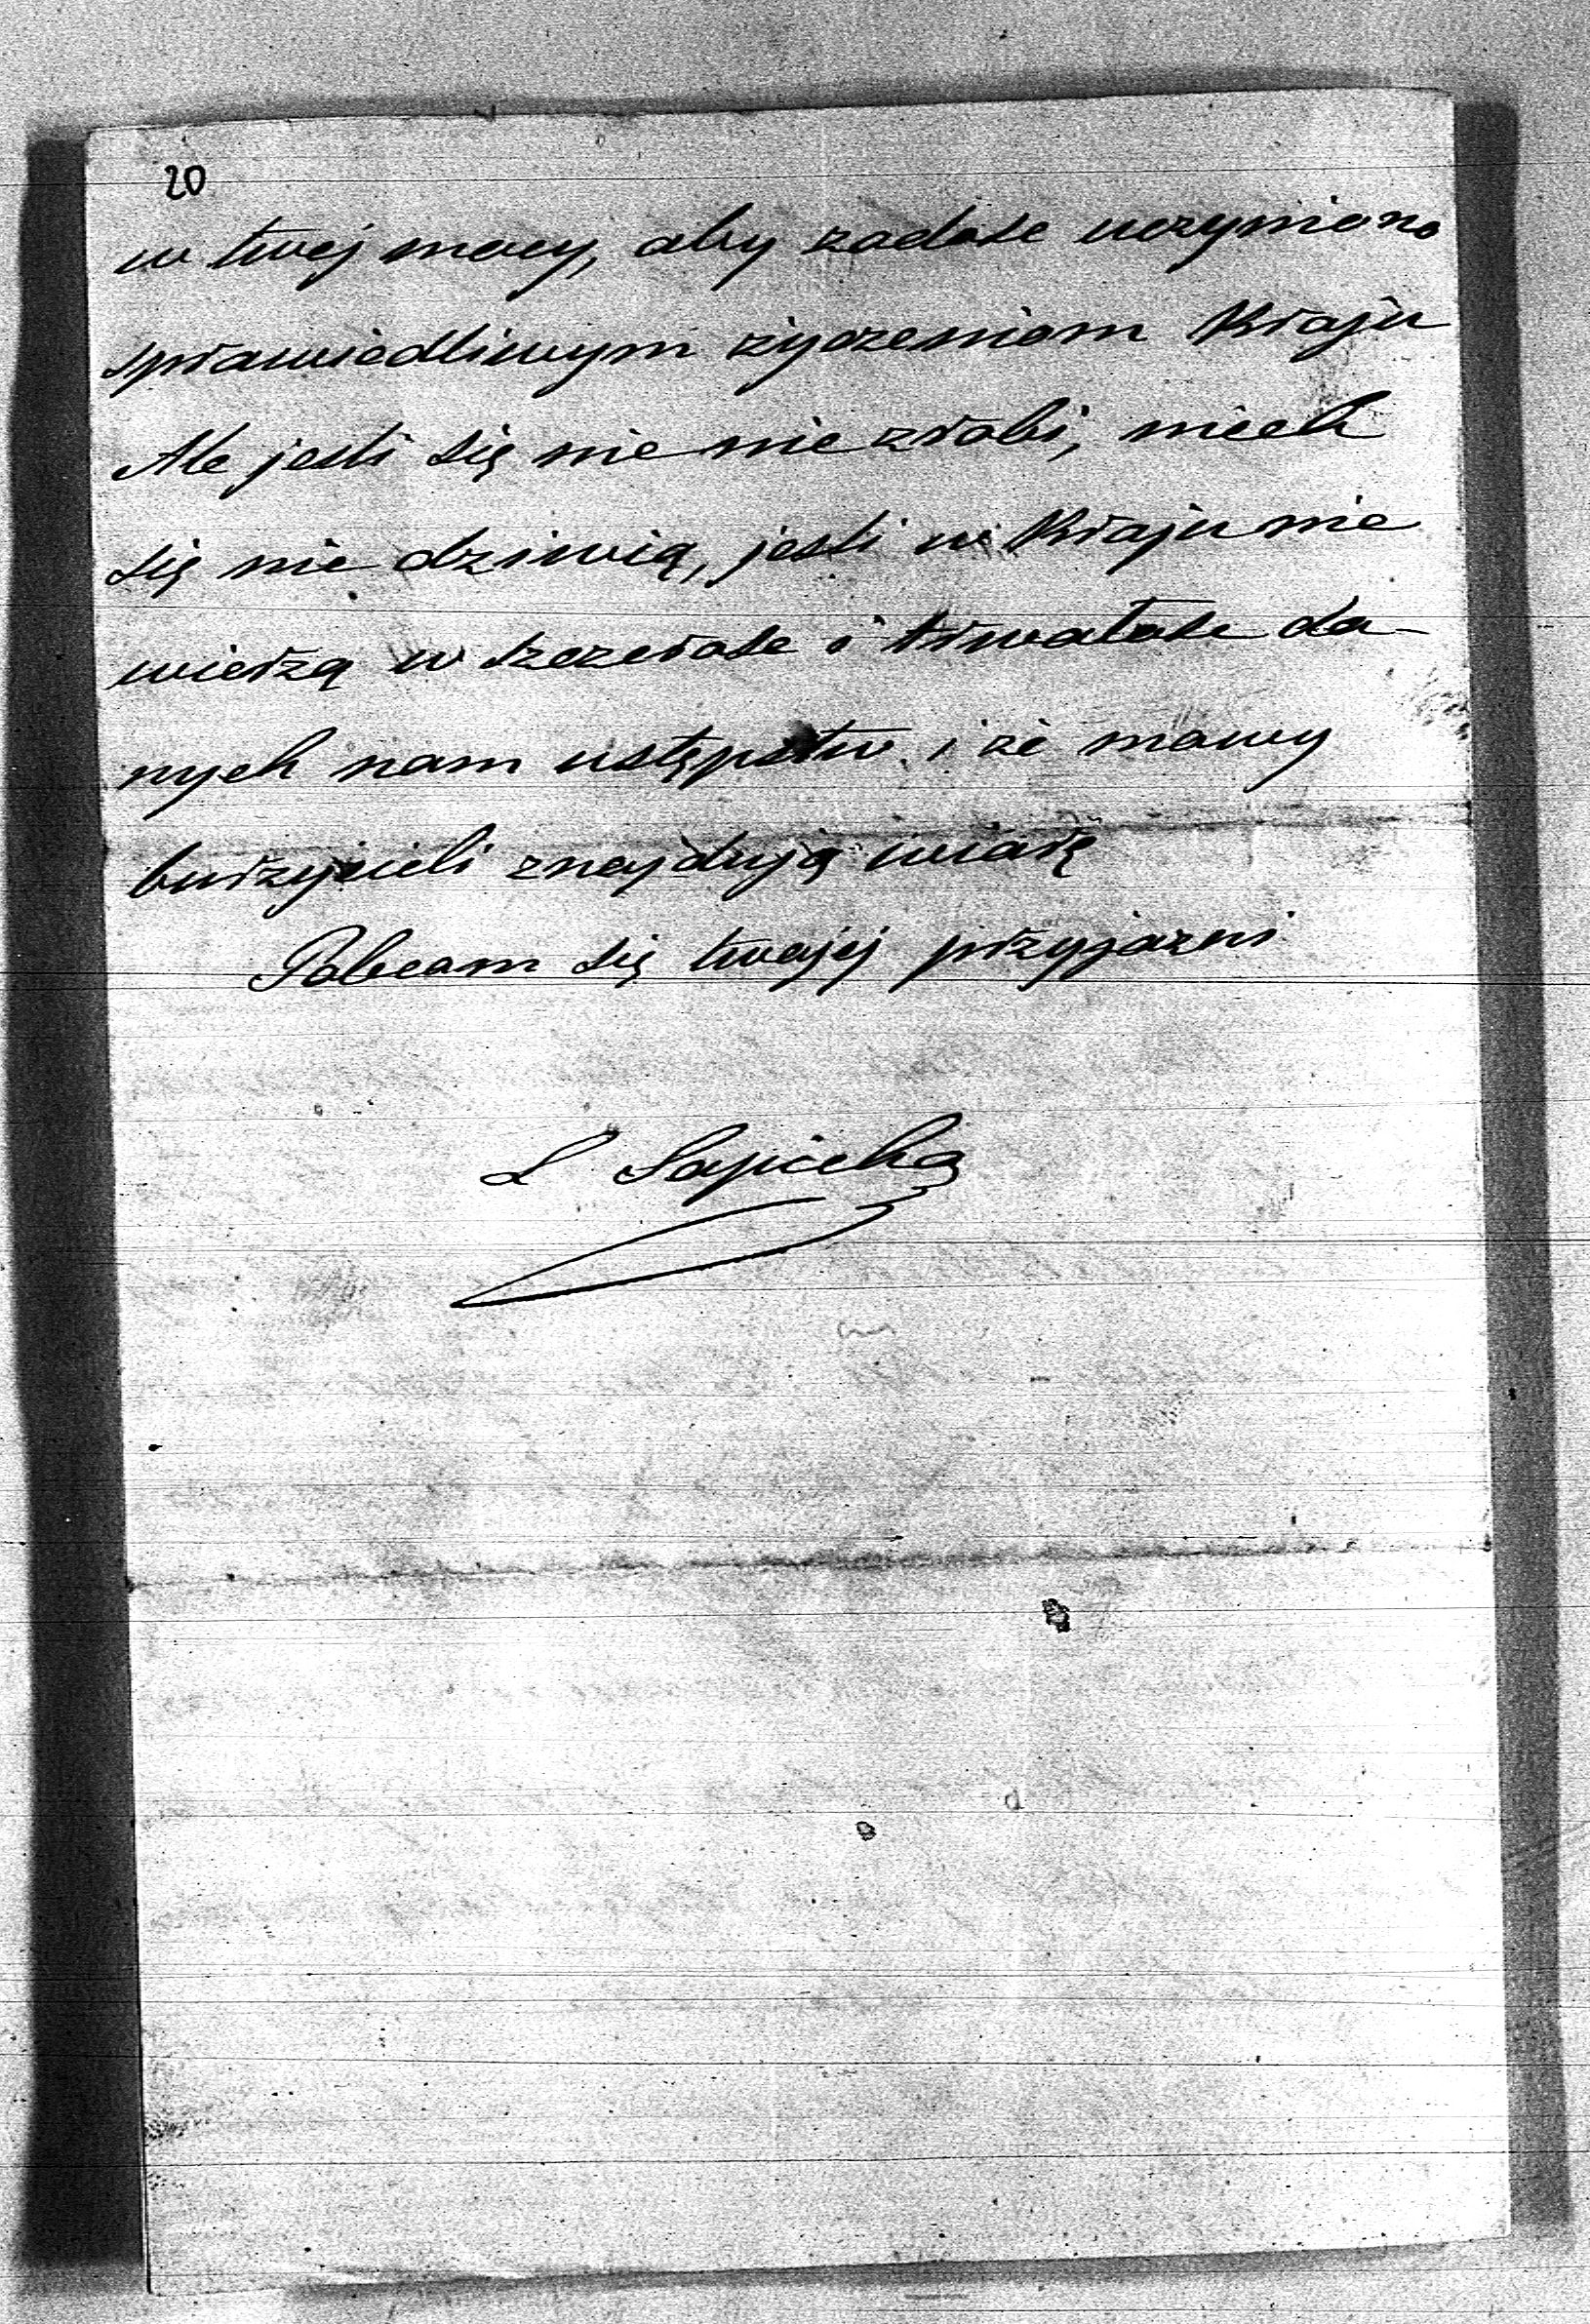 20
w twej mocy, aby zadość uczyniono
sprawiedliwym życzeniom Kraju
Ale jeśli się nic nie zrobi, niech
się nie dziwią, jeśli w Kraju nie
wierzą w szczerość i trwałość da-
nych nam ustępstw i że mowy
burzycieli znajdują wiarę
Polecam się twojej przyjaźni
L Sapieha